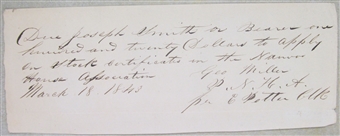 Due Joseph Smith or Bearer one
hundred and twenty Dollars to apply
on Stock certificates in the Nauvoo
House Association
Geo Miller
March 18 1843
P. N. H. A.
per E Potter Clk